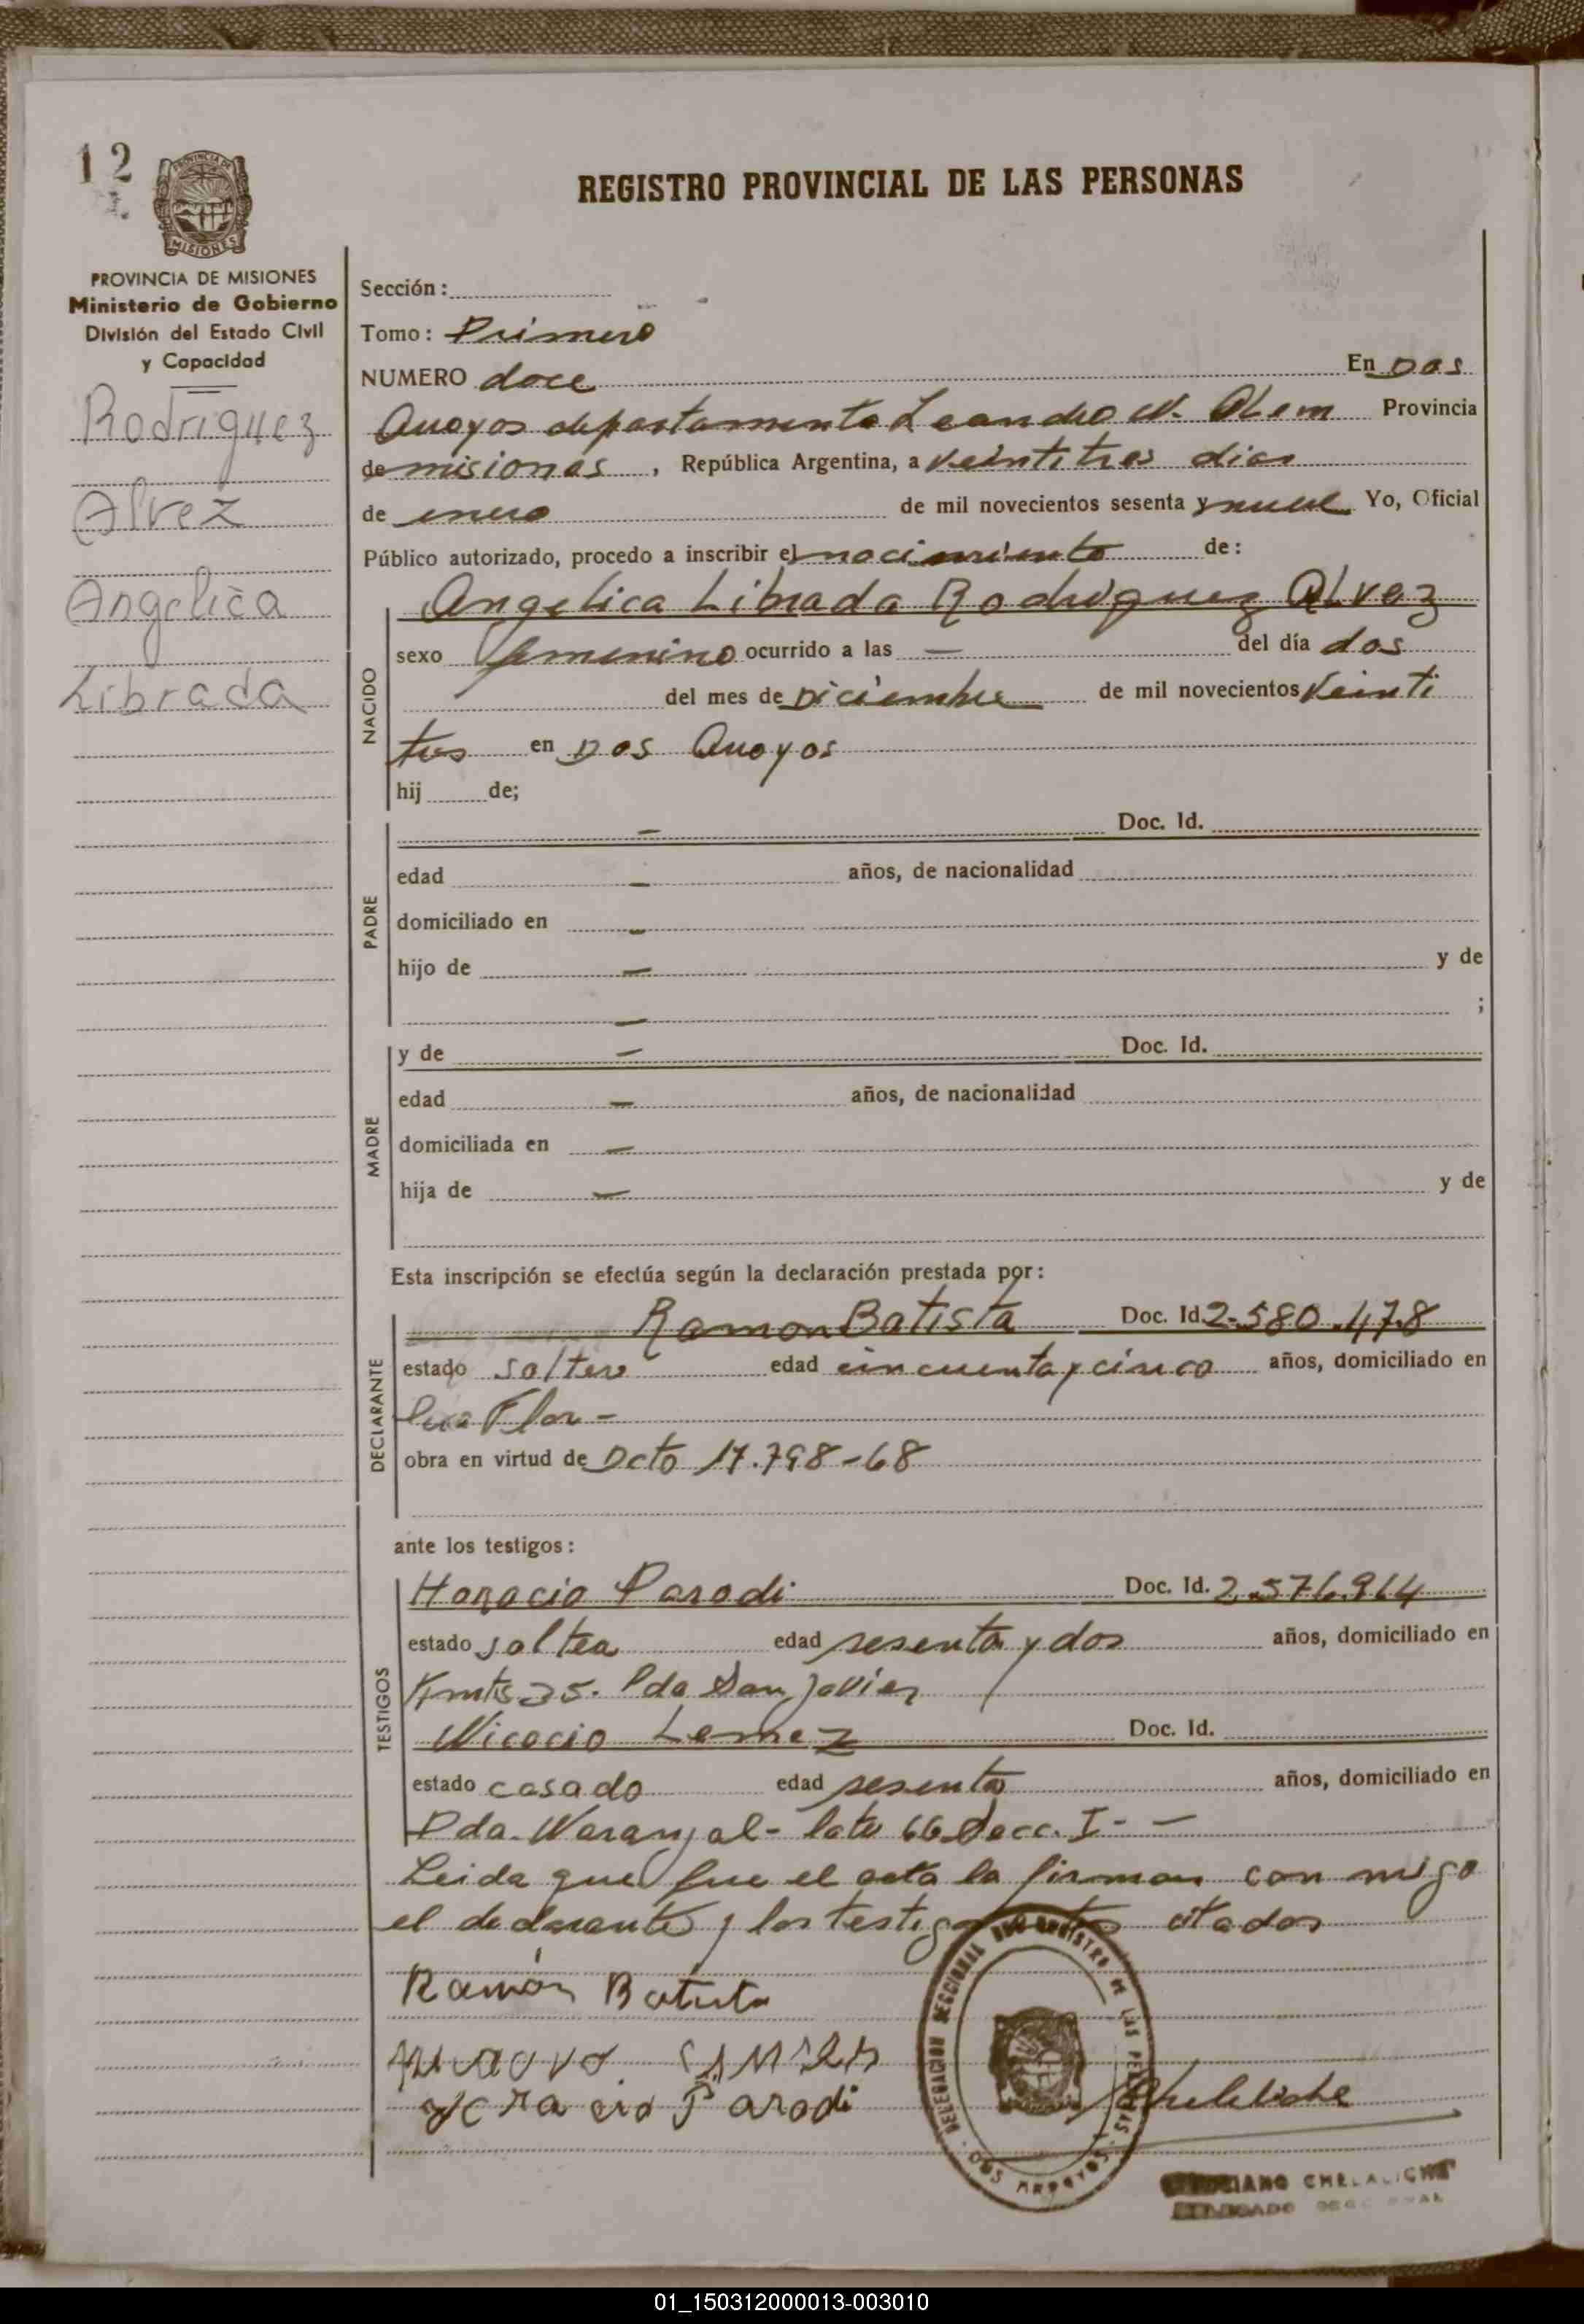 12
REGISTRO PROVINCIAL DE LAS PERSONAS
PROVINCIA DE
MISIONES
PROVINCIA DE MISIONES
Ministerio de Gobierno
División del Estado Civil
y Capacidad
Rodríguez
Alvez
Angelica
Librada
Sección:
Tomo: Primero
NUMERO doce En Dos
Arroyos departamento Leandro N. Alem Provincia
de misiones, República Argentina, a veintitres dias
de enero de mil novecientos sesenta y nueve Yo, Oficial
Público autorizado, procedo a inscribir el nacimiento de:
NACIDO
Angelica Librada Rodriguez Alvez
sexo femenino ocurrido a las — del día dos
del mes de Diciembre de mil novecientos veinti
tres en Dos Arroyos
hij de;
PADRE
— Doc. Id.
edad — años, de nacionalidad
domiciliado en —
hijo de — y de
— ;
MADRE
y de — Doc. Id.
edad — años, de nacionalidad
domiciliada en —
hija de — y de
Esta inscripción se efectúa según la declaración prestada por:
DECLARANTE
Ramon Batista Doc. Id. 2.580.478
estado soltero edad cincuenta y cinco años, domiciliado en
Flor -
obra en virtud de Dcto 17.798-68
ante los testigos:
TESTIGOS
Horacio Parodi Doc. Id. 2.576.964
estado soltea edad sesenta y dos años, domiciliado en
Kmts 35. Pda San Javier
Nicacio Lemez Doc. Id.
estado casado edad sesenta años, domiciliado en
Pda. Naranjal - lote 66 Secc. I - —
Leida que fue el acta la firman con migo
el declarante y los testigos citados
Ramón Batista
Parodi
DELEGACION SECCIONAL DEL REGISTRO DE LAS PERSONAS
DOS ARROYOS
CHELALICHE
DELEGADO SECCIONAL
01_150312000013-003010